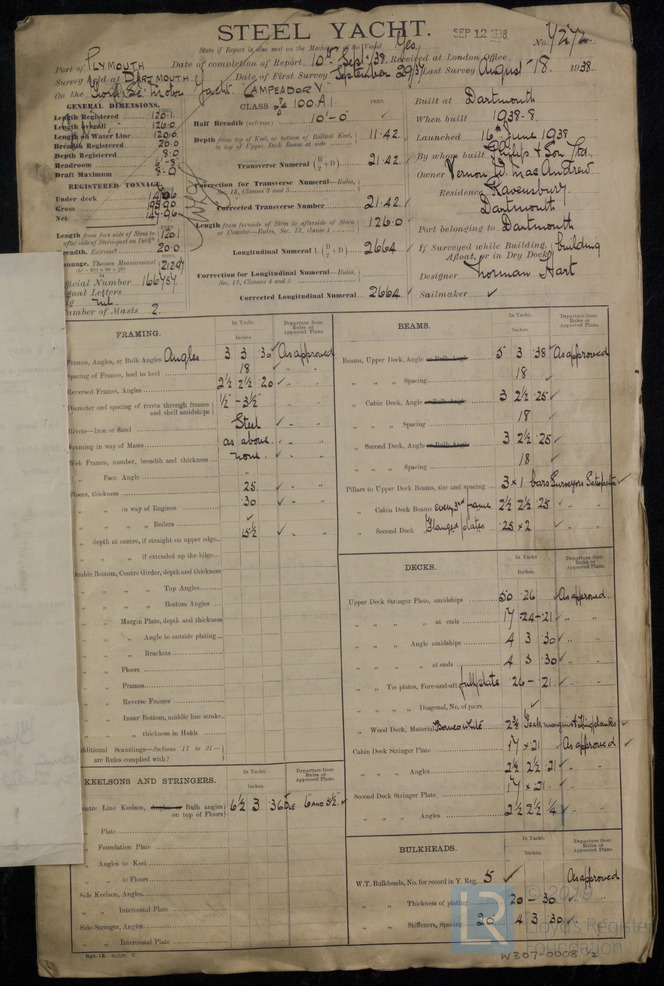 STEEL YACHT.
SEP 12 1938
No. 7272
State if Report is also sent on the Machinery of the Vessel Yes
Port of PLYMOUTH Date of completion of Report 10th Sept 38. Received at London Office
Survey held at DARTMOUTH Date of First Survey September 29/37 Last Survey August 18 1938.
On the Motor Yacht "CAMPEADOR V."
GENERAL DIMENSIONS.
Length Registered 120.1
Length Overall 126.0
Length on Water Line 120.0
Breadth Registered 20.0
Depth Registered 8.0
Headroom
Draft Maximum 8-0
REGISTERED TONNAGE
Under deck
Gross
Net 47.96
Length from fore side of Stem to after side of Stern-post on Deck 120.1
Breadth, Extreme 20.0
Tonnage, Thames Measurement 212.97
Official Number 166757
Signal Letters
nil
Number of Masts 2.
CLASS 100 A1.
FEET.
Half Breadth (extreme) 10'-0"
Depth from top of Keel, or bottom of Ballast Keel, to top of Upper Deck Beams 11.42
Transverse Numeral (B/2 + D) 21.42
Correction for Transverse Numeral—Rules, Sec. 13, Clauses 3 and 5
Corrected Transverse Numeral 21.42
Length from foreside of Stem to afterside of Stern or Counter—Rules, Sec. 13, clause 1 126.0
Longitudinal Numeral L (B/2 + D) 2664
Correction for Longitudinal Numeral—Rules, Sec. 13, Clauses 4 and 5
Corrected Longitudinal Numeral 2664
Built at Dartmouth
When built 1938-8.
Launched 16th June 1938
By whom built Philip & Son Ltd.
Owner Vernon W. MacAndrew
Residence Ravensbury
Dartmouth
Port belonging to Dartmouth
If Surveyed while Building, Afloat, or in Dry Dock building
Designer Norman Hart
Sailmaker ✓
FRAMING.
In Yacht. Inches. Departure from Rules or Approved Plans.
Frames, Angles, or Bulb Angles Angles 3 3 .30 ✓ As approved
Spacing of Frames, heel to heel 18
Reversed Frames, Angles 2½ 2½ .20 ✓ " "
Diameter and spacing of rivets through frames and shell amidships ½ - 3½
Rivets—Iron or Steel Steel ✓ " "
Framing in way of Masts as above. " "
Web Frames, number, breadth and thickness none. ✓ " "
" Face Angle "
Floors, thickness .25 ✓ " "
" " in way of Engines .30 ✓ " "
" " " Boilers ✓
" depth at centre, if straight on upper edge 15½ ✓ " "
" " if extended up the bilge
Double Bottom, Centre Girder, depth and thickness
" " Top Angles
" " Bottom Angles
" Margin Plate, depth and thickness
" " Angle to outside plating
" " Brackets
" Floors
" Frames
" Reverse Frames
" Inner Bottom, middle line strake
" " thickness in Holds
Additional Scantlings—Sections 17 to 21— are Rules complied with?
KEELSONS AND STRINGERS.
In Yacht. Inches. Departure from Rules or Approved Plans.
Centre Line Keelson, Angles or Bulb angles on top of Floors 6½ 3 .36
" " Plate
" " Foundation Plate
" " Angles to Keel
" " " to Floors
Side Keelson, Angles
" " Intercostal Plate
Side Stringer, Angles
" " Intercostal Plate
BEAMS.
In Yacht. Inches. Departure from Rules or Approved Plans.
Beams, Upper Deck, Angle or Bulb Angle 5 3 .38 ✓ As approved
" " " Spacing 18 ✓
" Cabin Deck, Angle or Bulb Angle 3 2½ .25 ✓
" " " Spacing 18 ✓
" Second Deck, Angle or Bulb Angle 3 2½ .25 ✓
" " " Spacing 18 ✓
Pillars to Upper Deck Beams, size and spacing 3 × 1 bars Surveyors Satisfaction ✓
" Cabin Deck Beams every 3rd frame 2½ 2½ .25 ✓
" Second Deck " Flanged plates .25 × 2 ✓
DECKS.
In Yacht Inches. Departure from Rules or Approved Plans.
Upper Deck Stringer Plate, amidships 50 .26 ✓ As approved.
" " " at ends 17 .24-.21 ✓ " "
" " Angle amidships 4 3 .30 ✓ " "
" " " at ends 4 3 .30 ✓ " "
" " Tie plates, Fore-and-aft full plate .26 - .21 ✓ " "
" " Diagonal, No. of pairs ✓
" Wood Deck, Material Borneo white 2¾ Teak margins & King planks ✓
Cabin Deck Stringer Plate 17 × .21 ✓ As approved ✓
" " " Angles 2½ 2½ .21 ✓ " "
Second Deck Stringer Plate 17 × .21 ✓
" " " Angles 2½ 2½ ¼ ✓ " "
BULKHEADS.
In Yacht. Inches. Departure from Rules or Approved Plans.
W.T. Bulkheads, No. for record in Y. Reg. 5 ✓ As approved
" " Thickness of plating .20 - .30 ✓ " "
" " Stiffeners, Spacing 20 4 3 .30 ✓ " "
LR
© 2019
Lloyd's Register
Foundation
W307-0008 ½